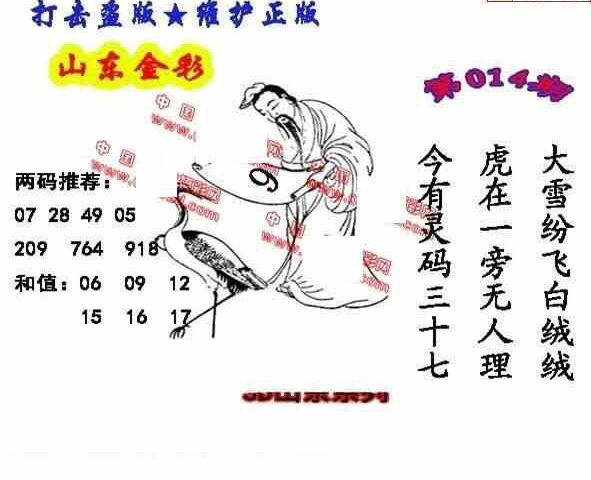 打击盗版★维护正版
山东金彩
第014期
大雪纷飞白绒绒
虎在一旁无人理
今有灵码三十七
两码推荐：
07 28 49 05
209 764 918
和值：06 09 12
15 16 17
9
中国
中国
中国